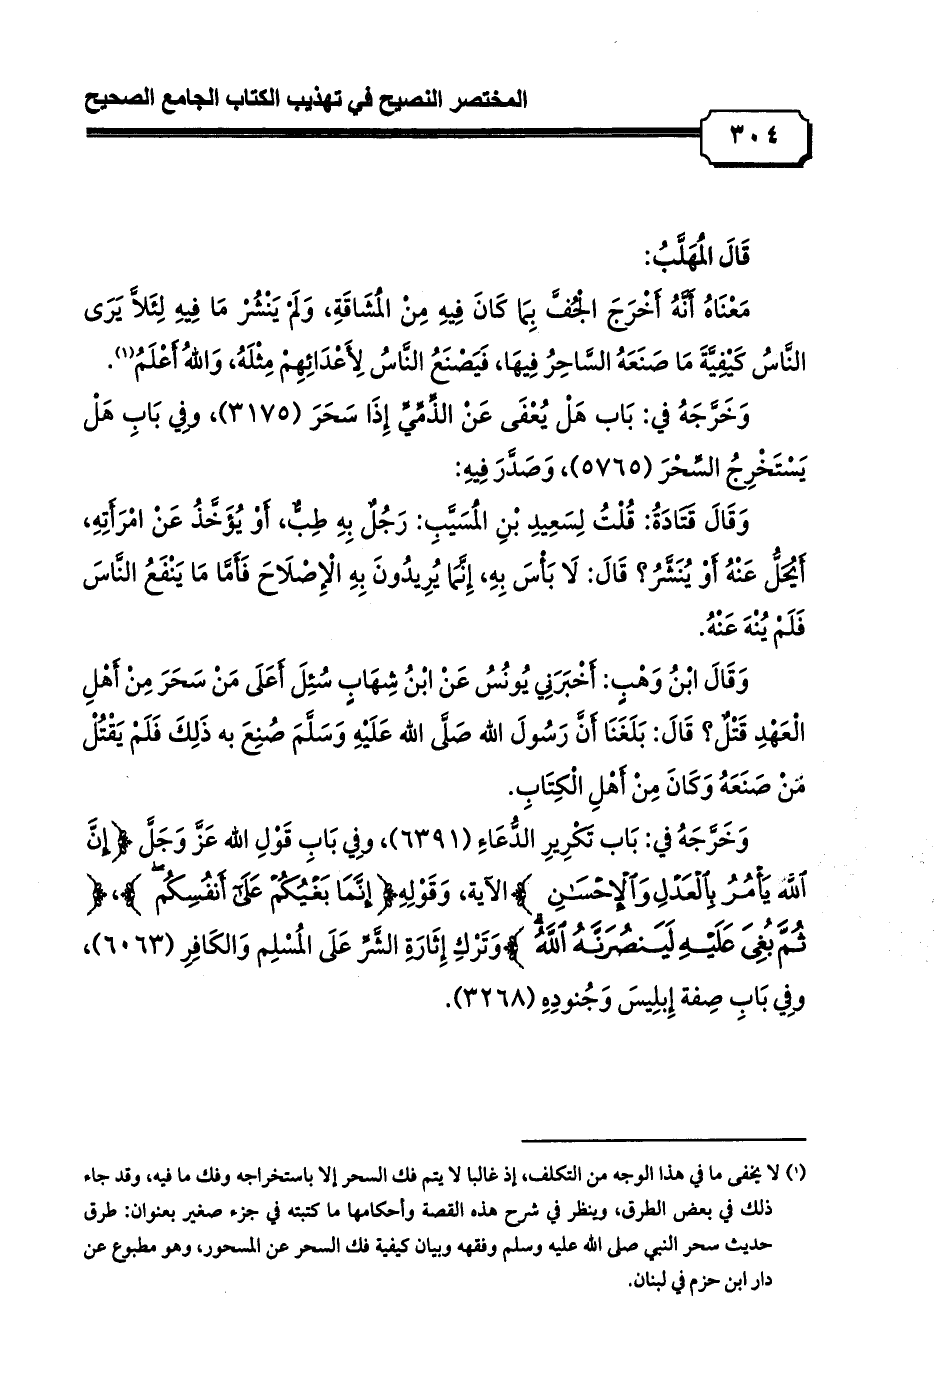 المختصر النصيح في تهذيب الكتاب الجامع الصحيح
٣٠٤
قَالَ الْمُهَلَّبُ:
مَعْنَاهُ أَنَّهُ أَخْرَجَ الْجُفَّ بِمَا كَانَ فِيهِ مِنْ الْمُشَاقَةِ، وَلَمْ يَنْثُرْ مَا فِيهِ لِئَلاَّ يَرَى
النَّاسُ كَيْفِيَّةَ مَا صَنَعَهُ السَّاحِرُ فِيهَا، فَيَصْنَعُ النَّاسُ لِأَعْدَائِهِمْ مِثْلَهُ، وَاللهُ أَعْلَمُ(١).
وَخَرَّجَهُ في: بَاب هَلْ يُعْفَى عَنْ الذِّمِّيِّ إِذَا سَحَرَ (٣١٧٥)، وفِي بَابِ هَلْ
يَسْتَخْرِجُ السِّحْرَ (٥٧٦٥)، وَصَدَّرَ فِيهِ:
وَقَالَ قَتَادَةُ: قُلْتُ لِسَعِيدِ بْنِ الْمُسَيَّبِ: رَجُلٌ بِهِ طِبٌّ، أَوْ يُؤَخَّذُ عَنْ امْرَأَتِهِ،
أَيُحَلُّ عَنْهُ أَوْ يُنَشَّرُ؟ قَالَ: لَا بَأْسَ بِهِ، إِنَّمَا يُرِيدُونَ بِهِ الْإِصْلَاحَ فَأَمَّا مَا يَنْفَعُ النَّاسَ
فَلَمْ يُنْهَ عَنْهُ.
وَقَالَ ابْنُ وَهْبٍ: أَخْبَرَنِي يُونُسُ عَنْ ابْنُ شِهَابٍ سُئِلَ أَعَلَى مَنْ سَحَرَ مِنْ أَهْلِ
الْعَهْدِ قَتْلٌ؟ قَالَ: بَلَغَنَا أَنَّ رَسُولَ الله صَلَّى الله عَلَيْهِ وَسَلَّمَ صُنِعَ به ذَلِكَ فَلَمْ يَقْتُلْ
مَنْ صَنَعَهُ وَكَانَ مِنْ أَهْلِ الْكِتَابِ.
وَخَرَّجَهُ في: بَاب تَكْرِيرِ الدُّعَاءِ (٦٣٩١)، وفِي بَابِ قَوْلِ الله عَزَّ وَجَلَّ ﴿إِنَّ
ٱللَّهَ يَأْمُرُ بِٱلْعَدْلِ وَٱلْإِحْسَٰنِ ﴾ الآية، وَقَوْلِهِ ﴿إِنَّمَا بَغْيُكُمْ عَلَىٰٓ أَنفُسِكُم ۖ﴾، ﴿
ثُمَّ بُغِىَ عَلَيْهِ لَيَنصُرَنَّهُ ٱللَّهُ ۗ﴾ وَتَرْكِ إِثَارَةِ الشَّرِّ عَلَى الْمُسْلِمِ وَالكَافِرِ (٦٠٦٣)،
وفِي بَابِ صِفة إِبلِيسَ وَجُنودِهِ (٣٢٦٨).
(١) لا يخفى ما في هذا الوجه من التكلف، إذ غالبا لا يتم فك السحر إلا باستخراجه وفك ما فيه، وقد جاء
ذلك في بعض الطرق، وينظر في شرح هذه القصة وأحكامها ما كتبته في جزء صغير بعنوان: طرق
حديث سحر النبي صلى الله عليه وسلم وفقهه وبيان كيفية فك السحر عن المسحور، وهو مطبوع عن
دار ابن حزم في لبنان.